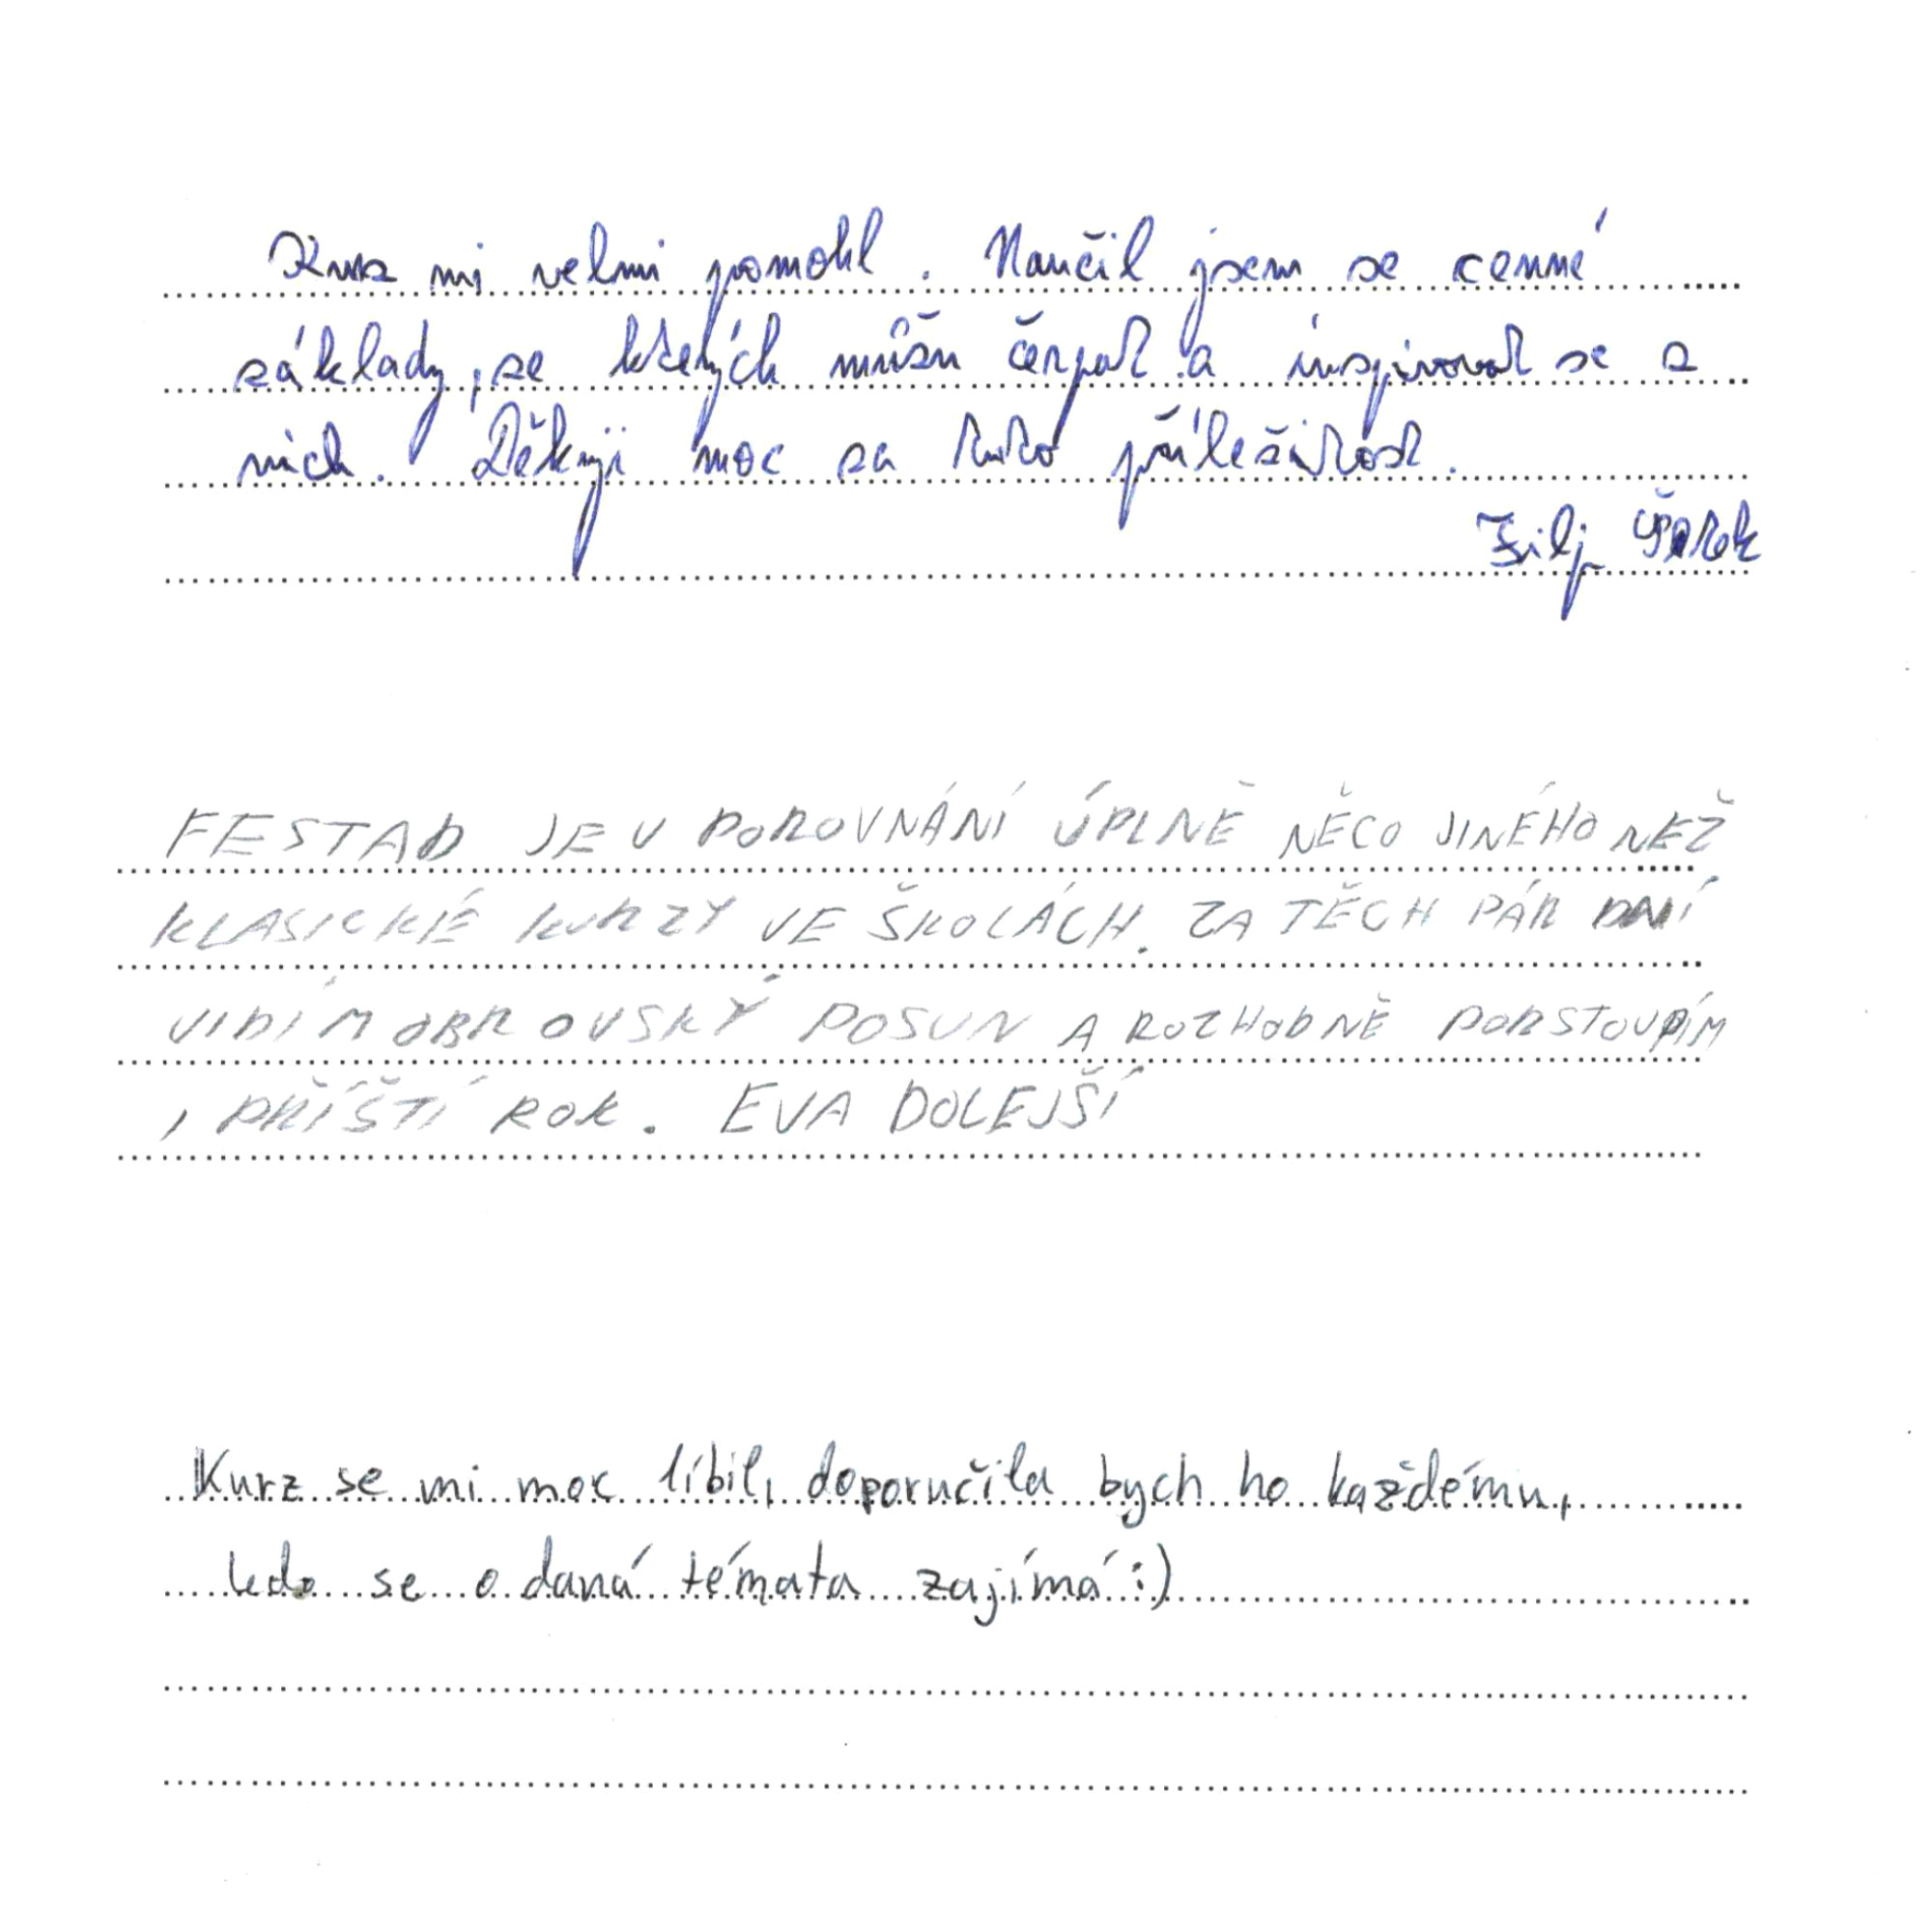 Kurz mi velmi pomohl. Naučil jsem se cenné
základy, ze kterých můžu čerpat a inspirovat se z
nich. Děkuji moc za tuto příležitost.
Filip
FESTAD JE V POROVNÁNÍ ÚPLNĚ NĚCO JINÉHO NEŽ
KLASICKÉ KURZY VE ŠKOLÁCH. ZA TĚCH PÁR DNÍ
VIDÍM OBROVSKÝ POSUN A ROZHODNĚ PODSTOUPÍM
I PŘÍŠTÍ ROK. EVA DOLEJŠÍ
Kurz se mi moc líbil, doporučila bych ho každému,
kdo se o daná témata zajímá :)